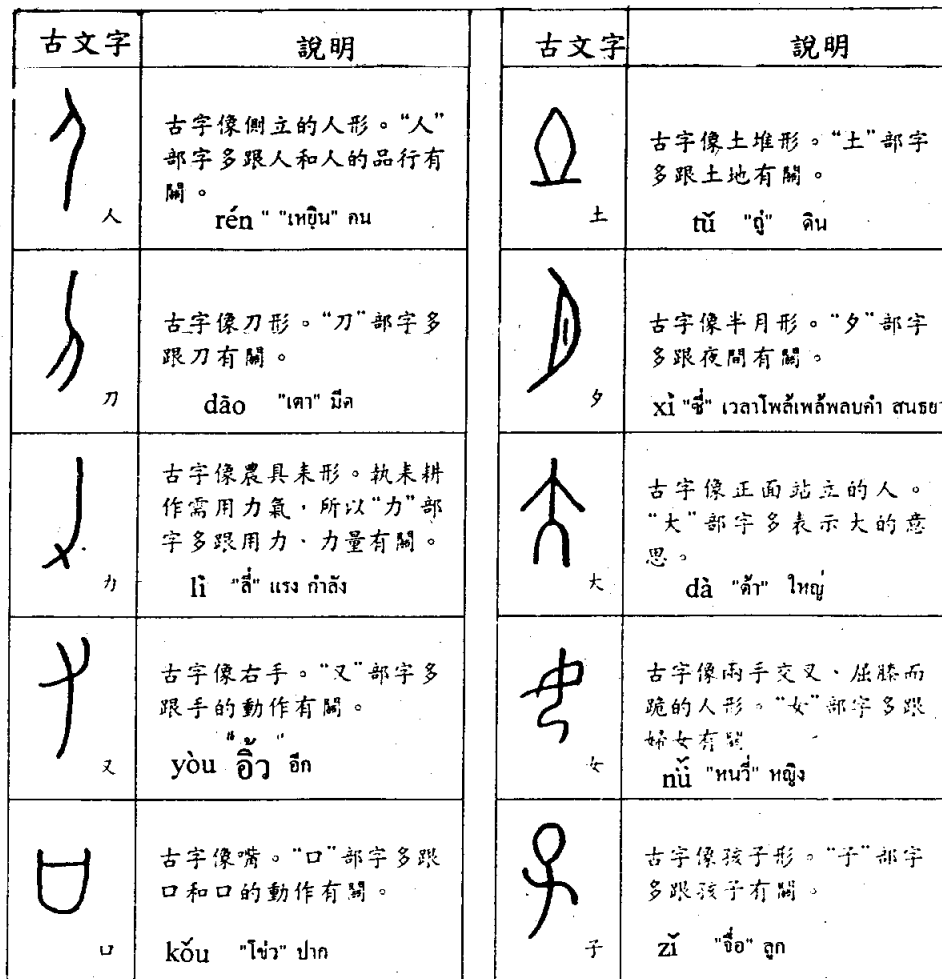 古文字 說明
古字像側立的人形。“人”
部字多跟人和人的品行有
關。
人
rén " "เหยิน" คน
古字像刀形。“刀”部字多
跟刀有關。
刀
dāo "เตา" มีด
古字像農具耒形。執耒耕
作需用力氣,所以“力”部
字多跟用力、力量有關。
力
lì "ลี่" แรง กำลัง
古字像右手。“又”部字多
跟手的動作有關。
又
yòu "อิ้ว" อีก
古字像嘴。“口”部字多跟
口和口的動作有關。
口
kǒu "โข่ว" ปาก
古文字 說明
古字像土堆形。“土”部字
多跟土地有關。
土
tǔ "ถู่" ดิน
古字像半月形。“夕”部字
多跟夜間有關。
夕
xì "ซี่" เวลาโพล้เพล้พลบค่ำ สนธยา
古字像正面站立的人。
“大”部字多表示大的意
思。
大
dà "ต้า" ใหญ่
古字像兩手交叉、屈膝而
跪的人形。“女”部字多跟
婦女有關
女
nǚ "หนวี่" หญิง
古字像孩子形。“子”部字
多跟孩子有關。
子
zǐ "จื่อ" ลูก